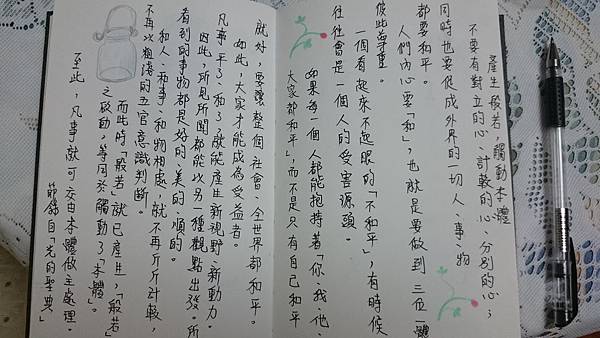 產生般若,觸動本體
不要有對立的心、計較的心、分別的心;
同時也要促成外界的一切人、事、物
都要和平。
人們內心要「和」,也就是要做到三位一體
彼此尊重。
一個看起來不起眼的「不和平」,有時候
往往會是一個人的受害源頭。
如果每一個人都能抱持著「你、我、他、
大家都和平」,而不是只有自己和平
就好,要讓整個社會、全世界都和平。
如此,大家才能成為受益者。
凡事平了、和了,就能產生新視野、新動力。
因此,所見所聞都能以另一種觀點出發。所
看到的事物都是好的、美的、順的。
和人、和事、和物相處,就不再斤斤計較,
不再以粗淺的五官意識判斷。
而此時「般若」就已產生,「般若」
之啟動。等同於觸動了「本體」。
至此,凡事就可交由本體做主處理。
節錄自「光的聖典」